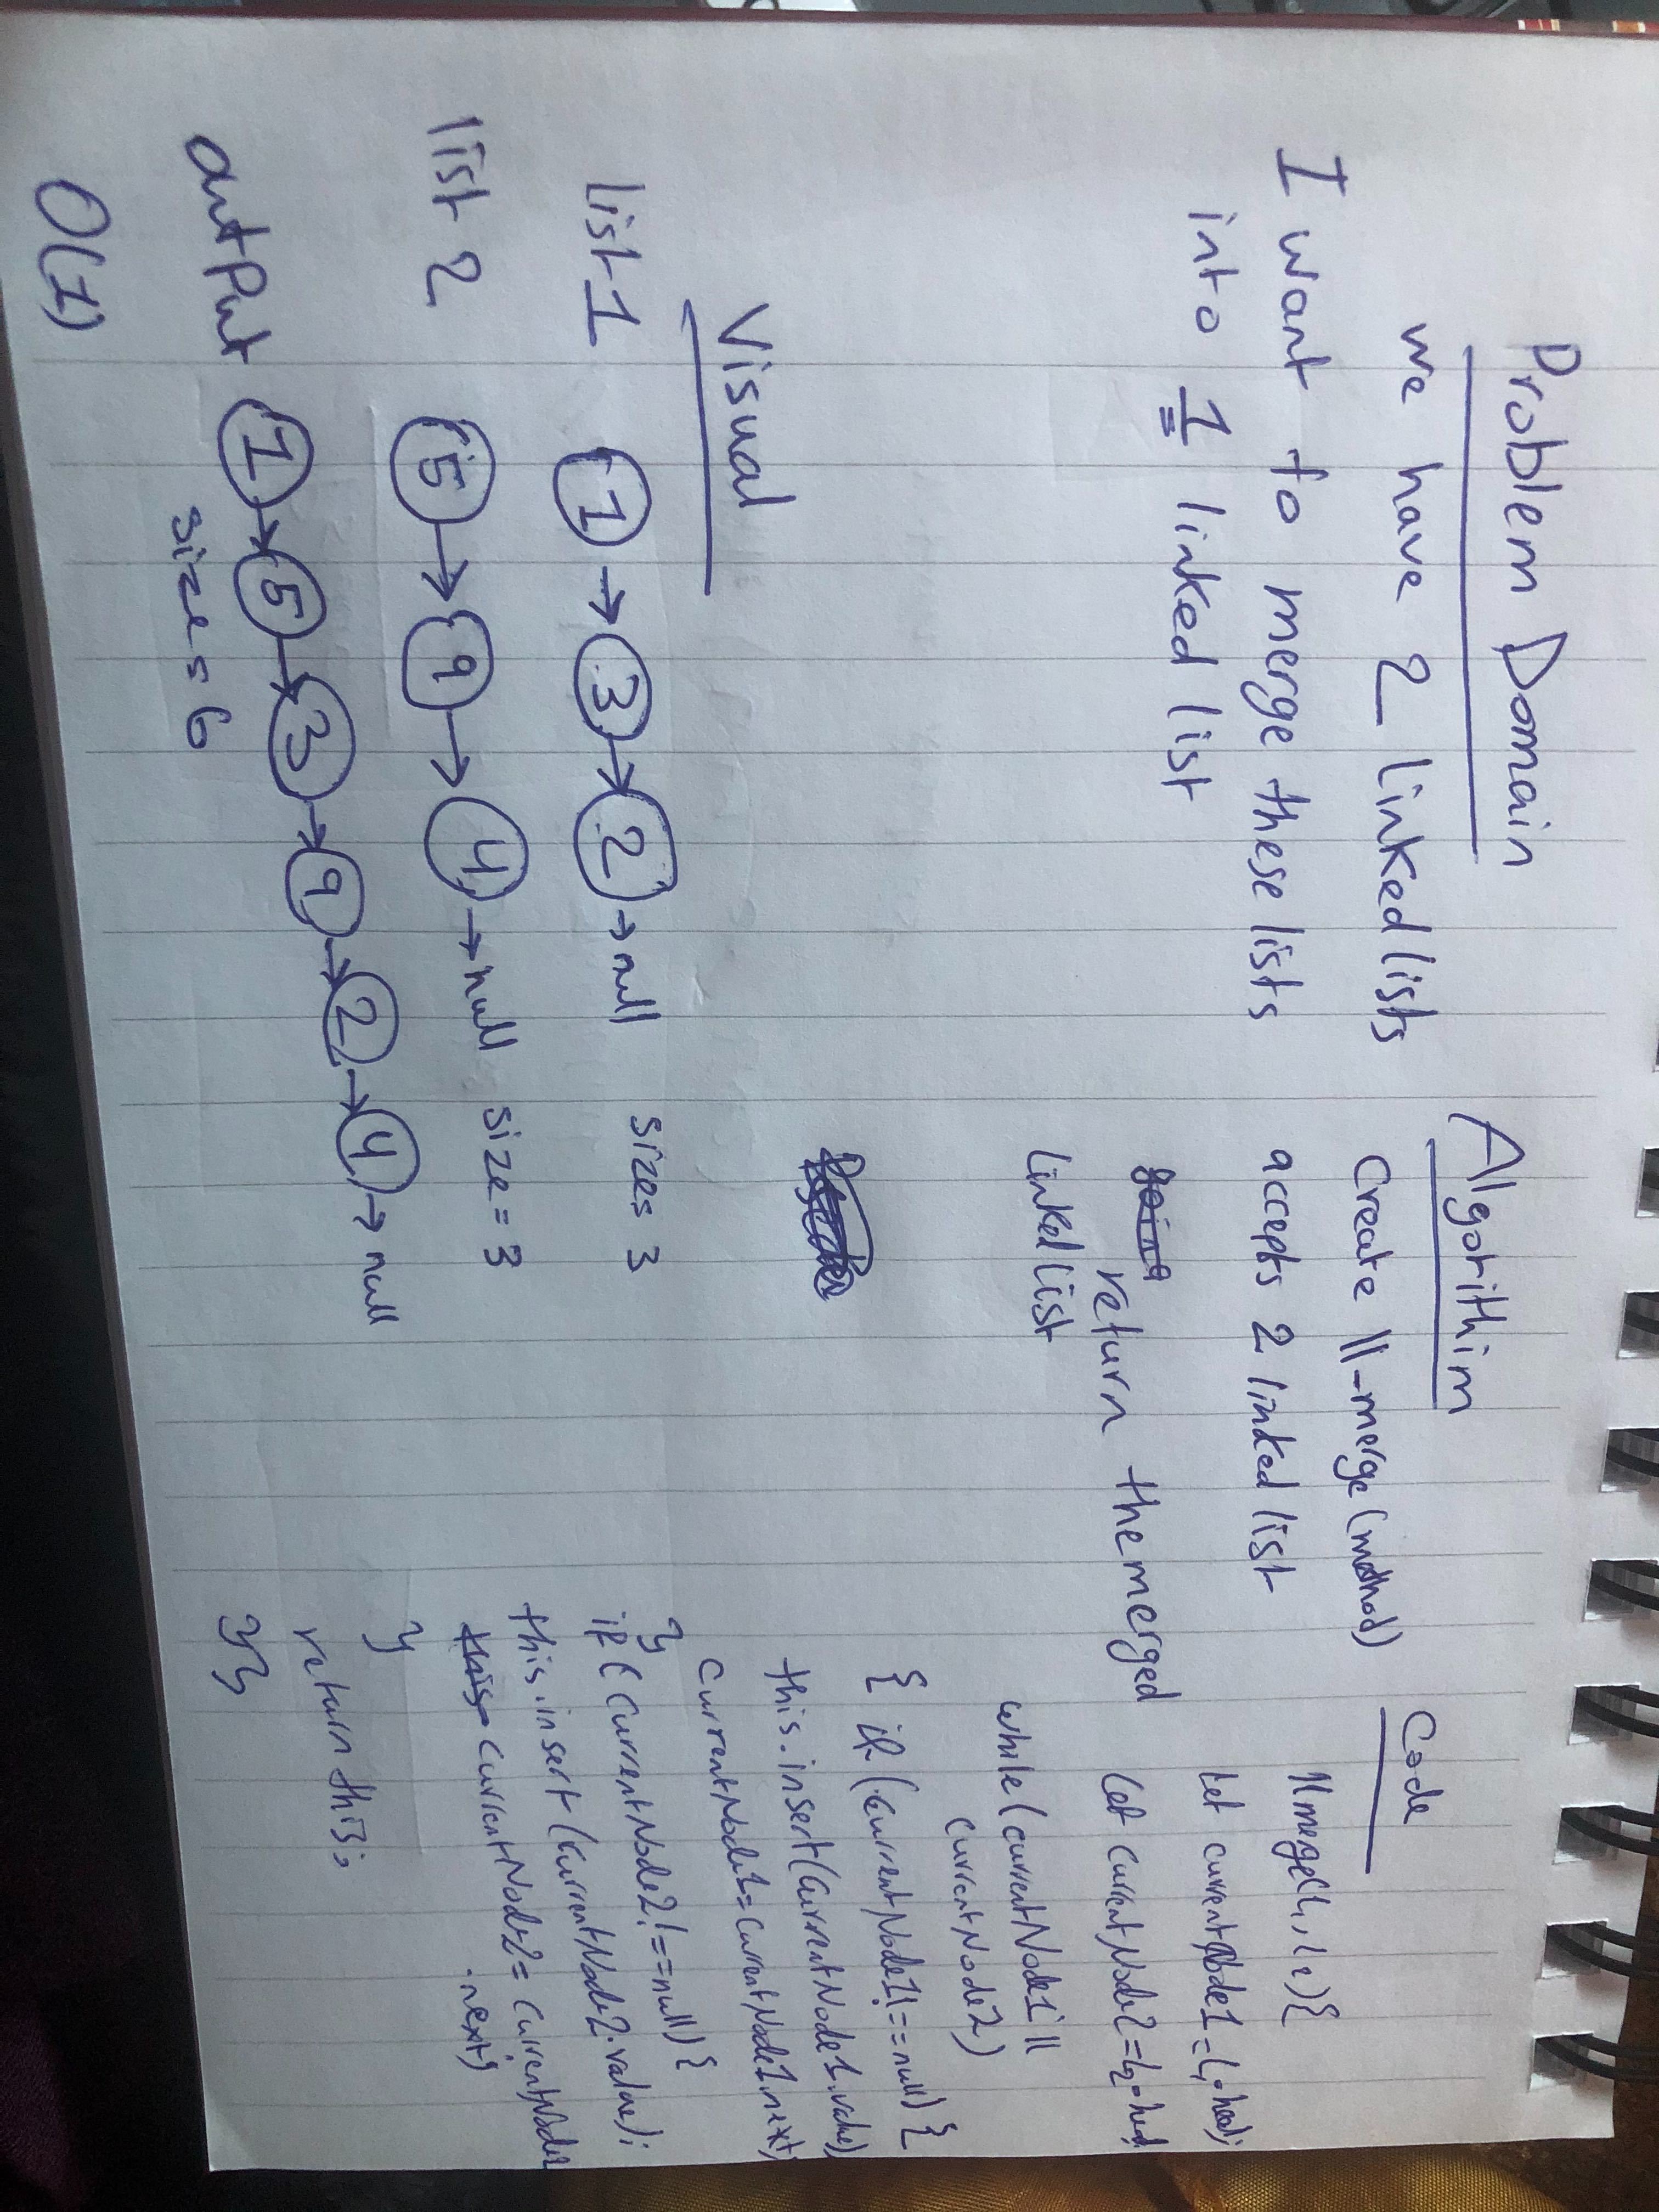 Problem Domain
we have 2 linked lists
I want to merge these lists
into 1 linked list
Visual
list 1 1 → 3 → 2 → null sizes 3
list 2 5 → 9 → 4 → null size = 3
output 1 → 5 → 3 → 9 → 2 → 4 → null
size = 6
O(1)
Algorithim
Create ll-merge (method)
accepts 2 linked list
return the merged
linked list
Code
llmerge(l1, l2){
let currentNode1 = l1.head;
let currentNode2 = l2.head
while (currentNode1 ||
currentNode2)
{ if (currentNode1 !== null) {
this.insert(currentNode1.value)
currentNode1 = currentNode1.next;
}
if (currentNode2 !== null) {
this.insert(currentNode2.value);
this currentNode2 = currentNode2
.next;
}
return this;
}}